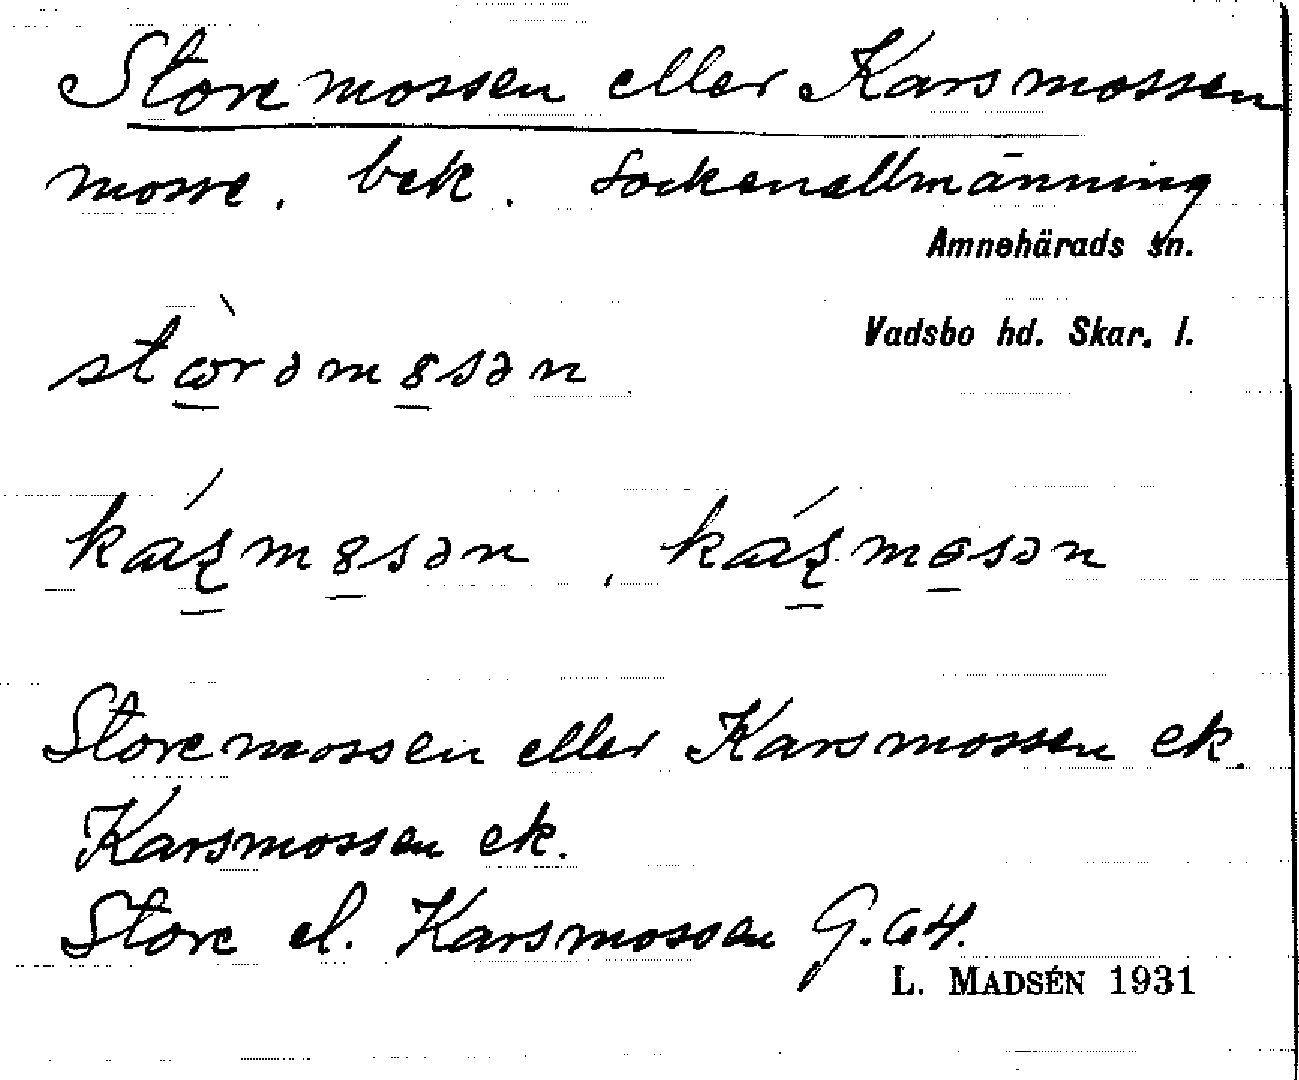 Storemossen eller Karsmossen
mosse, bek. Sockenallmänning
Amnehärads sn.
Vadsbo hd. Skar. l.
Storemossen eller Karsmossen ek.
Karsmossen ek.
Store el. Karsmossen G. 64.
L. MADSÉN 1931